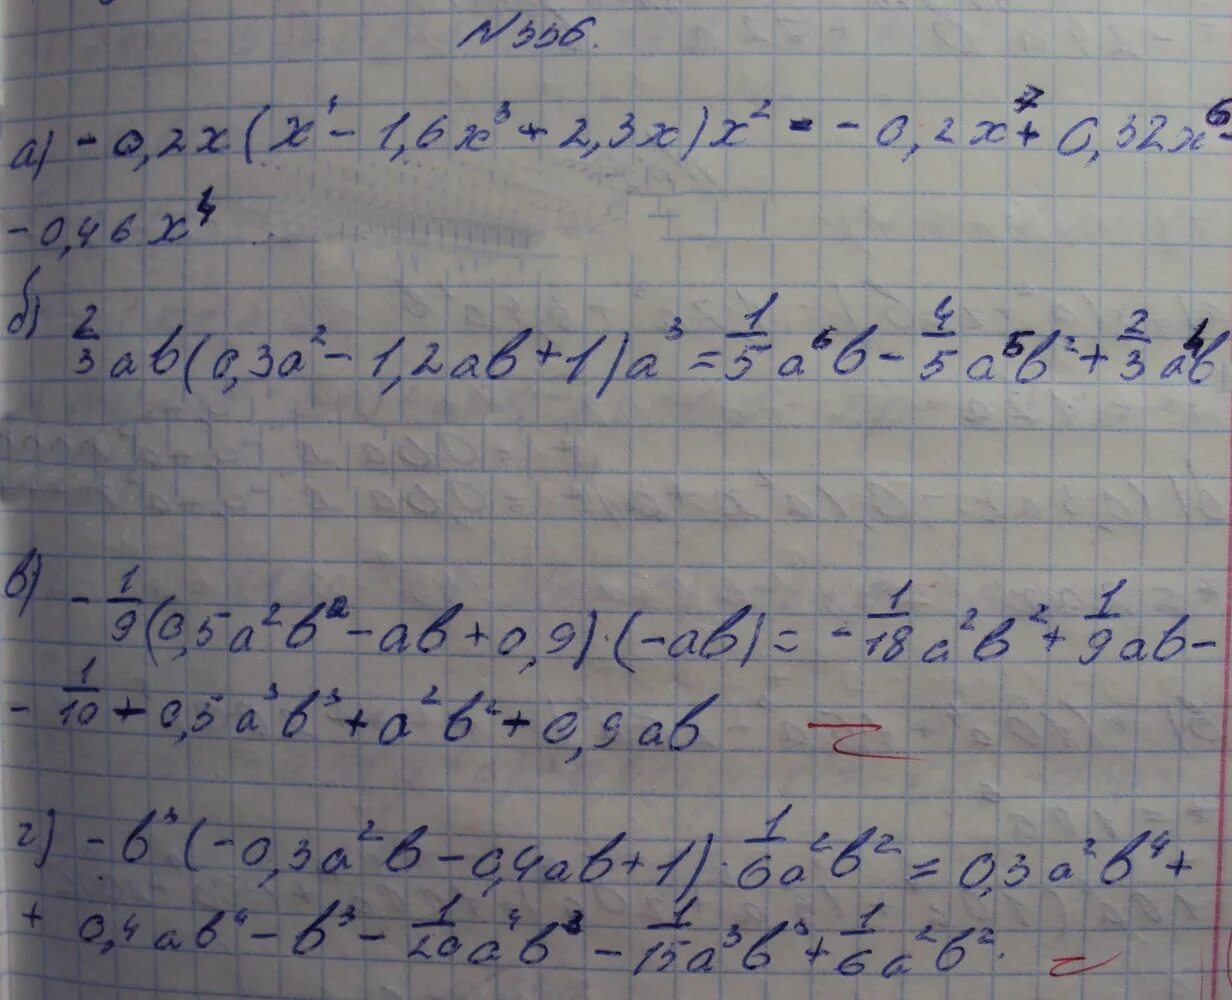 № 556.
а) - 0,2x(x⁴ - 1,6x³ + 2,3x)x² = - 0,2x⁷ + 0,32x⁶ -
- 0,46x⁴
б) 2/3 ab(0,3a² - 1,2ab + 1)a³ = 1/5 a⁶b - 4/5 a⁵b² + 2/3 a⁴b
в) - 1/9 (0,5a²b² - ab + 0,9) · (-ab) = - 1/18 a²b² + 1/9 ab -
- 1/10 + 0,5a³b³ + a²b² + 0,9ab
г) - b³(-0,3a²b - 0,4ab + 1) · 1/6 a²b² = 0,3a²b⁴ +
+ 0,4ab⁴ - b³ - 1/20 a⁴b³ - 1/15 a³b³ + 1/6 a²b².